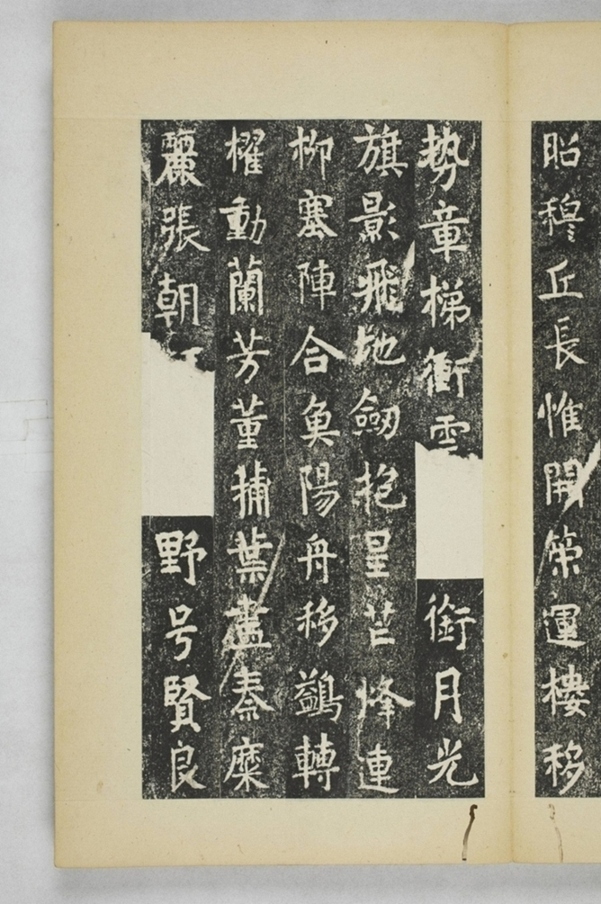 昭穆丘長惟開策運樓移
勢章梯衝雲銜月光
旗影飛地劒抱星芒烽連
柳塞陣合魚陽舟移鷁轉
櫂動蘭芳董狐葉盡秦糜
麗張朝野号賢良